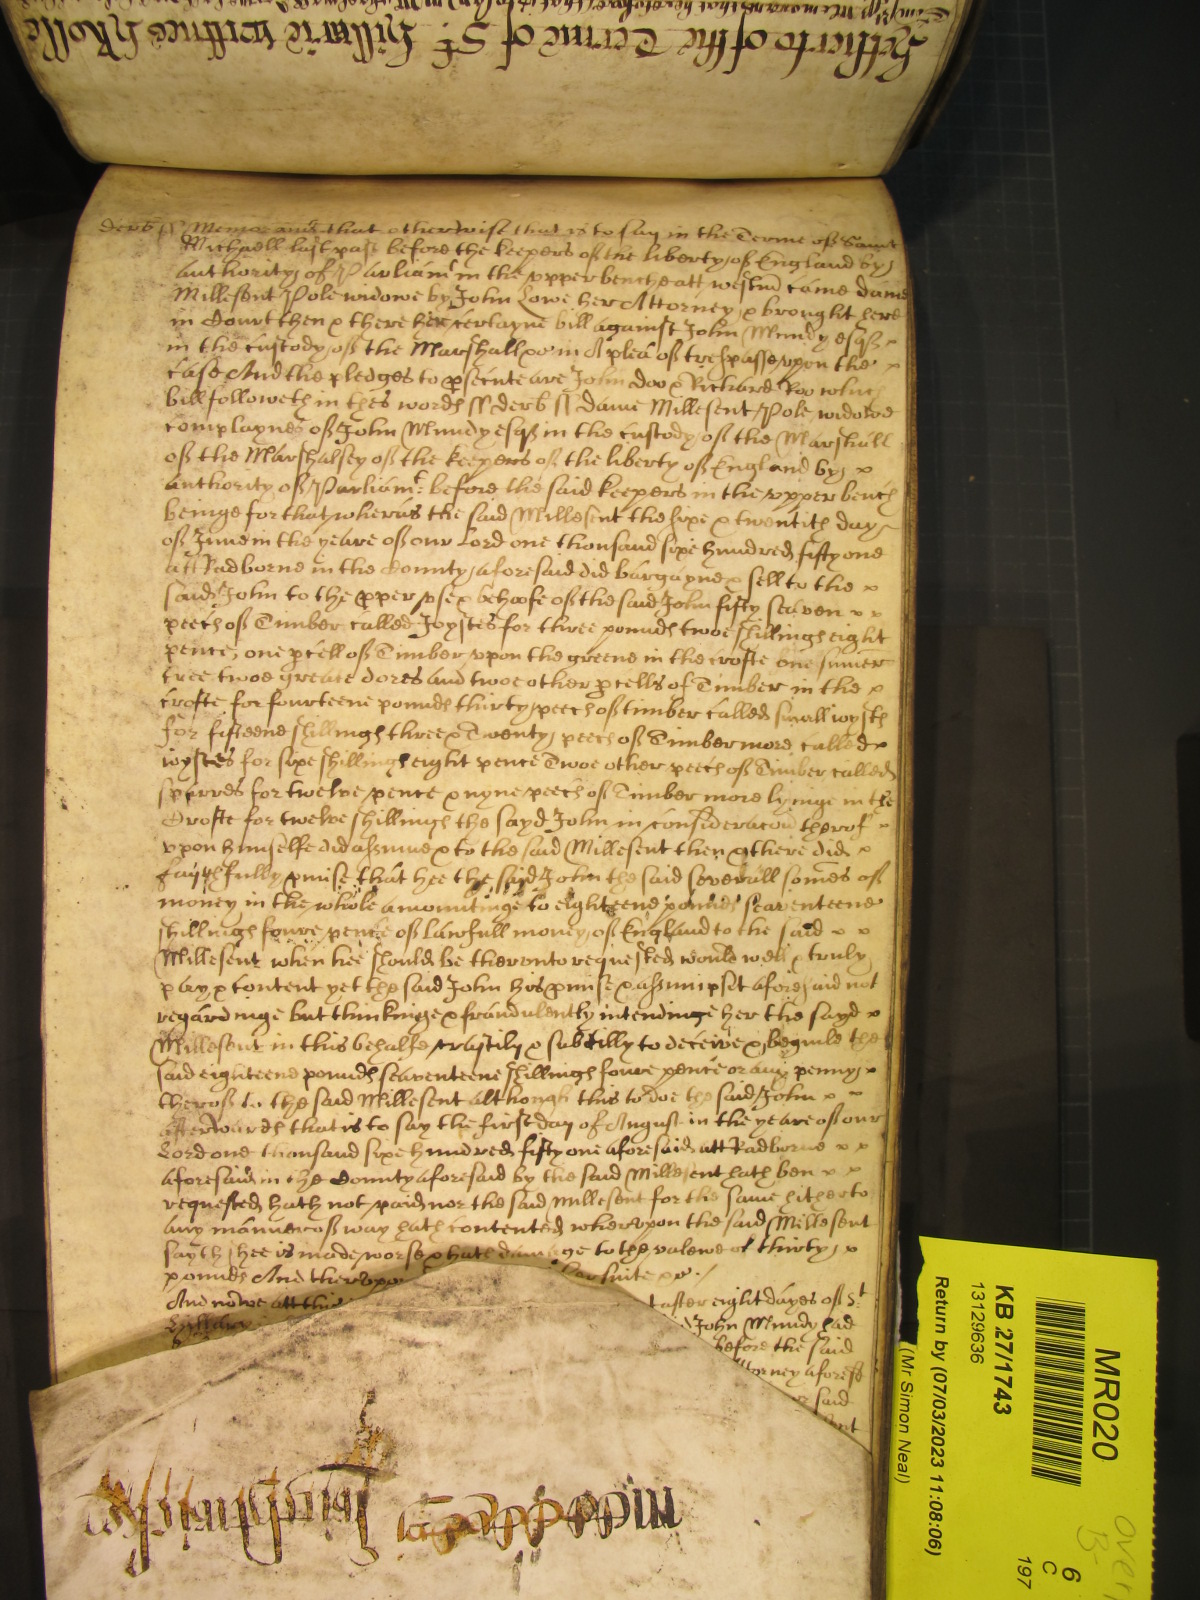 Hetherto of the Terme of St. Hillarie wittnes H Rolle
derb ss Memorand that otherwise that is to say in the Terme of Saint
Michaell last past before the keepers of the liberty of England by
authority of Parliamt in the upper benche att westm came dame
Millesent Pole widowe by John Lowe her Attorney & brought here
in Court then & there her certayne bill against John Mundy esqr x
in the custody of the Marshall &c in A plea of trespasse upon the x
case And the pledges to psecute are John doo & Richard Roo which
bill followeth in thes words ss derb ss dame Millesent Pole widowe
complaynes of John Mundy esqr in the custody of the Marshall
of the Marshalsey of the keepers of the liberty of England by x
authority of Parliamt: before the said keepers in the upper bench
beinge for that wheras the said Millesent the sixe & twentith day
of June in the yeare of our Lord one thousand sixe hundred fifty one
att Radborne in the County aforesaid did bargayne & sell to the x
said John to the pper use & behoofe of the said John fifty seaven x x
peeces of Timber called Joystes for three pounds twoe shillings eight
pence, one pcell of Timber upon the greene in the crofte one sumer
tree twoe greate dores and twoe other pcells of Timber in the x
crofte for fourteene pounds thirty peeces of timber called small ioysts
for fifteene shillings three & Twenty peeces of Timber more called x
ioystes for sixe shillings eight pence Twoe other peeces of Timber called
sparres for twelve pence & nyne peeces of Timber more lyinge in the
Crofte for twelve shillings the sayd John in consideracon therof x
upon himselfe did assume & to the said Millesent then & there did x
faythfully pmise that hee the said John the said severall somes of
money in the whole amountinge to eighteene pounds seaventeene
shillings foure pence of lawfull money of England to the said x x
Millesent when hee should be therunto requested would well & truly
pay & content yet the said John his pmise & assumpsit aforesaid not
regardinge but thinkinge & fraudulently intendinge her the sayd x
Millesent in this behalfe craftily & subtilly to deceive & beguile the
said eighteene pounds seaventeene shillings foure pence or any penny x
therof to the said Millesent although this to doe the said John x x
afterwards that is to say the first day of August in the yeare of our
Lord one thousand sixe hundred fifty one aforesaid att Radborne x x
aforesaid in the County aforesaid by the said Millesent hath ben x x
requested hath not paid nor the said Millesent for the same hitherto
any manner of way hath contented wherupon the said Millesent
sayth shee is made worse & hath damage to the valewe of thirty x
pounds And therupon her suite &c.
And nowe att this t after eight dayes of St
Hillary John Mundy had
before the said
Attorney aforesd
said
KB 27/1743
13129636
Return by (07/03/2023 11:08:06)
(Mr Simon Neal)
MR020
6
C
197
over
B-